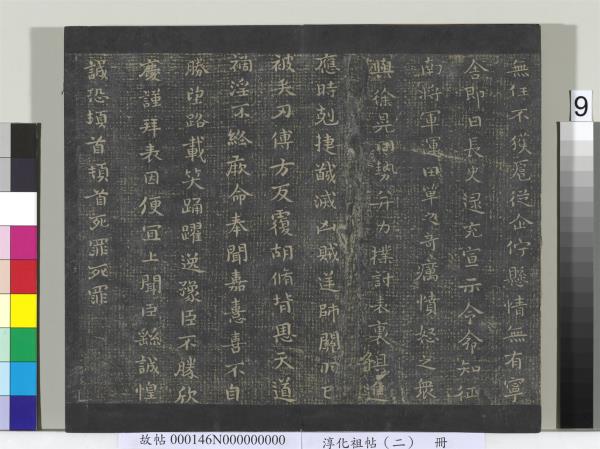 無任不獲扈從企佇懸情無有寧
舍即日長史逯充宣示令命知征
南將軍運田單之奇厲憤怒之衆
與徐晃同勢并力撲討表裏俱進
應時剋捷馘滅凶賊逆師關羽已
被矢刃傅方反覆胡脩背恩天道
禍淫不終厥命奉聞嘉憙喜不自
勝望路載笑踊躍逸豫臣不勝欣
慶謹拜表因便宜上聞臣繇誠惶
誠恐頓首頓首死罪死罪
9
故帖 000146N000000000
淳化祖帖（二） 冊